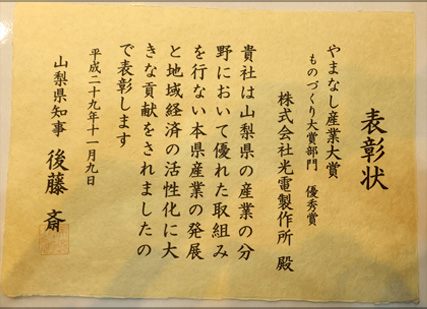 表彰状
やまなし産業大賞
ものづくり大賞部門 優秀賞
株式会社光電製作所 殿
貴社は山梨県の産業の分
野において優れた取組み
を行ない本県産業の発展
と地域経済の活性化に大
きな貢献をされましたの
で表彰します
平成二十九年十一月九日
山梨県知事 後藤 斎